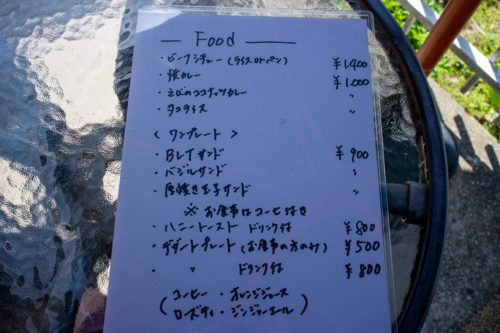 Food
・ビーフシチュー(ライスorパン) ¥1,400
・豚カレー ¥1,000
・えびのココナッツカレー 〃
・タコライス 〃
〈 ワンプレート 〉
・BLTサンド ¥900
・バジルサンド 〃
・厚焼き玉子サンド
※ お食事はコーヒー付き
・ハニートースト ドリンク付 ¥800
・デザートプレート(お食事の方のみ) ¥500
・ 〃 ドリンク付 ¥800
(コーヒー・オレンジジュース
ローズティ・ジンジャーエール)